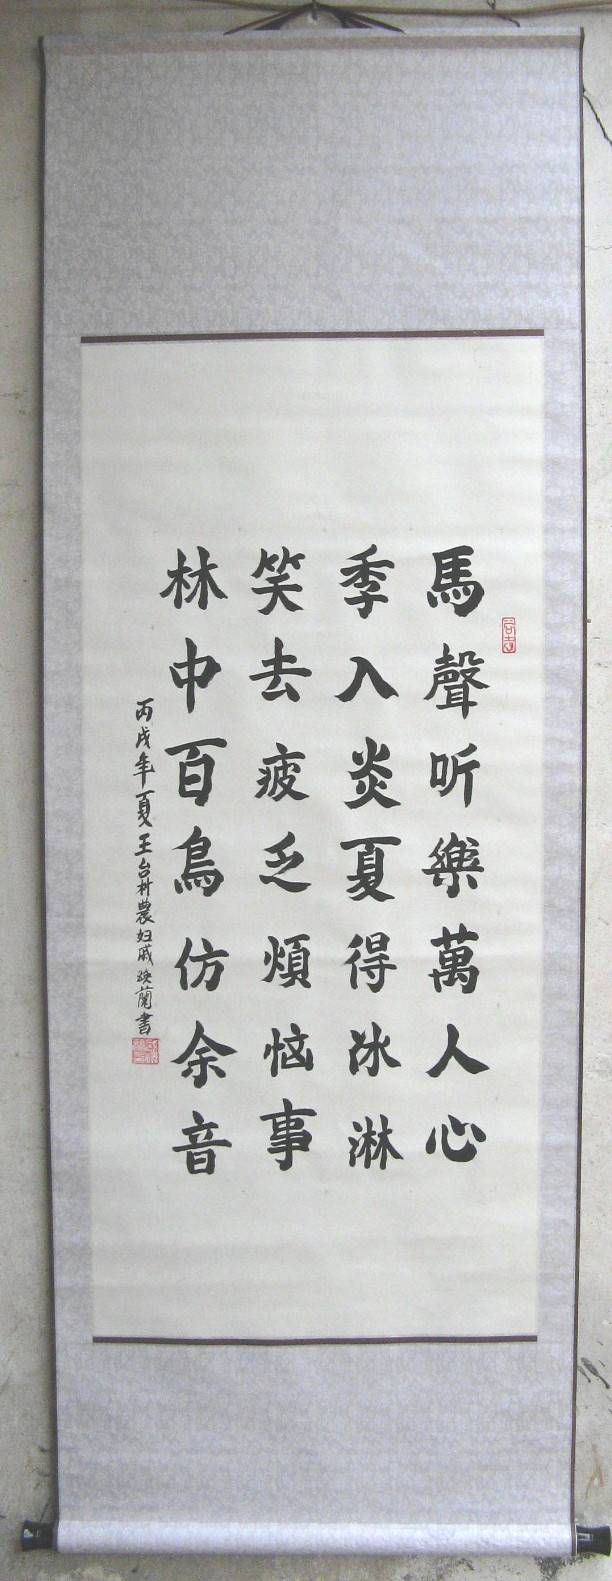 馬聲听樂萬人心
季入炎夏得冰淋
笑去疲乏煩恼事
林中百鳥仿余音
丙戌年夏王台村農妇戚焕蘭書